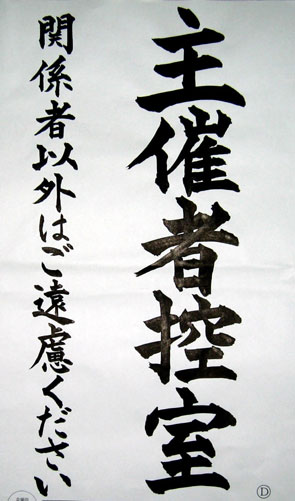 主催者控室
関係者以外はご遠慮ください
Ⓓ